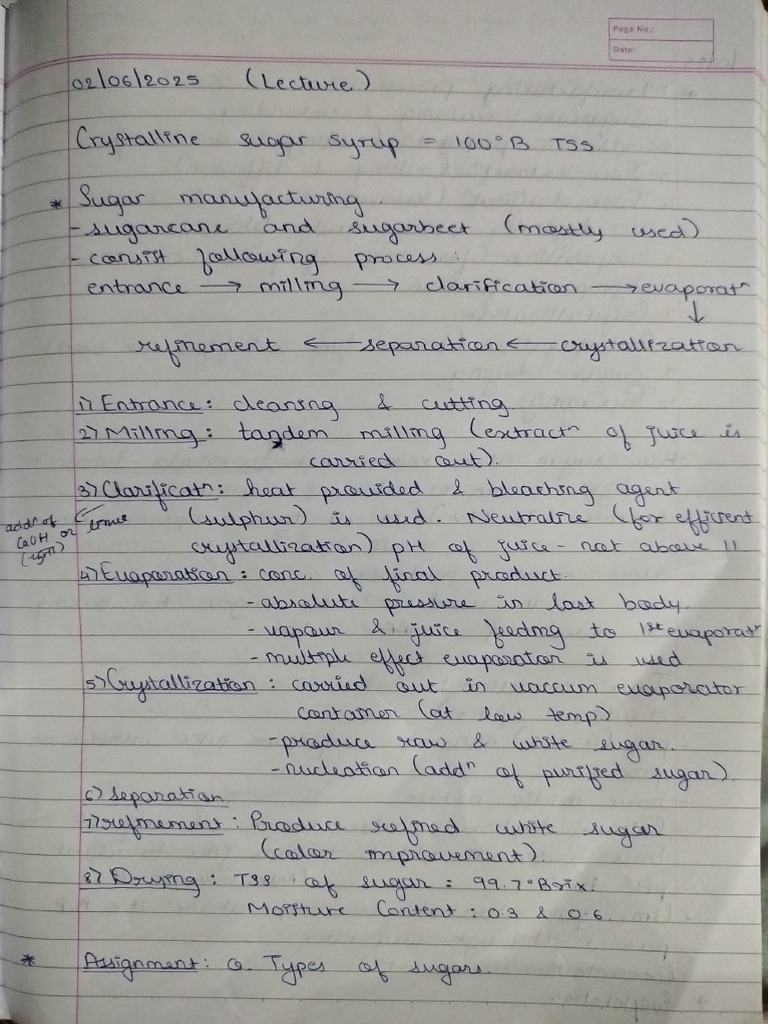 Page No.:
Date:
02/06/2025 (Lecture)
Crystalline sugar syrup = 100°B TSS
* Sugar manufacturing.
- sugarcane and sugarbeet (mostly used)
- consist following process :
entrance → milling → clarification → evaporatⁿ
↓
refinement ← separation ← crystallization
1) Entrance : cleaning & cutting
2) Milling : tandem milling (extractⁿ of juice is
carried out).
3) Clarificatⁿ : heat provided & bleaching agent
addⁿ of CaOH or lime
(sulphur) is used. Neutralize (for efficient
crystallization) pH of juice - not above 11
4) Evaporation : conc. of final product.
- absolute pressure in last body.
- vapour & juice feeding to 1st evaporatʳ
- multiple effect evaporator is used
5) Crystallization : carried out in vaccum evaporator
container (at low temp)
- produce raw & white sugar.
- nucleation (addⁿ of purified sugar)
6) Separation
7) refinement : Produce refined white sugar
(color improvement).
8) Drying : TSS of sugar : 99.7°Brix.
Moisture Content : 0.3 & 0.6.
* Assignment : Q. Types of sugars.